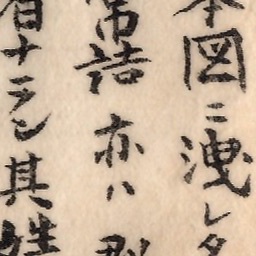 本図ニ洩レタ
常詰亦ハ
ナラン其